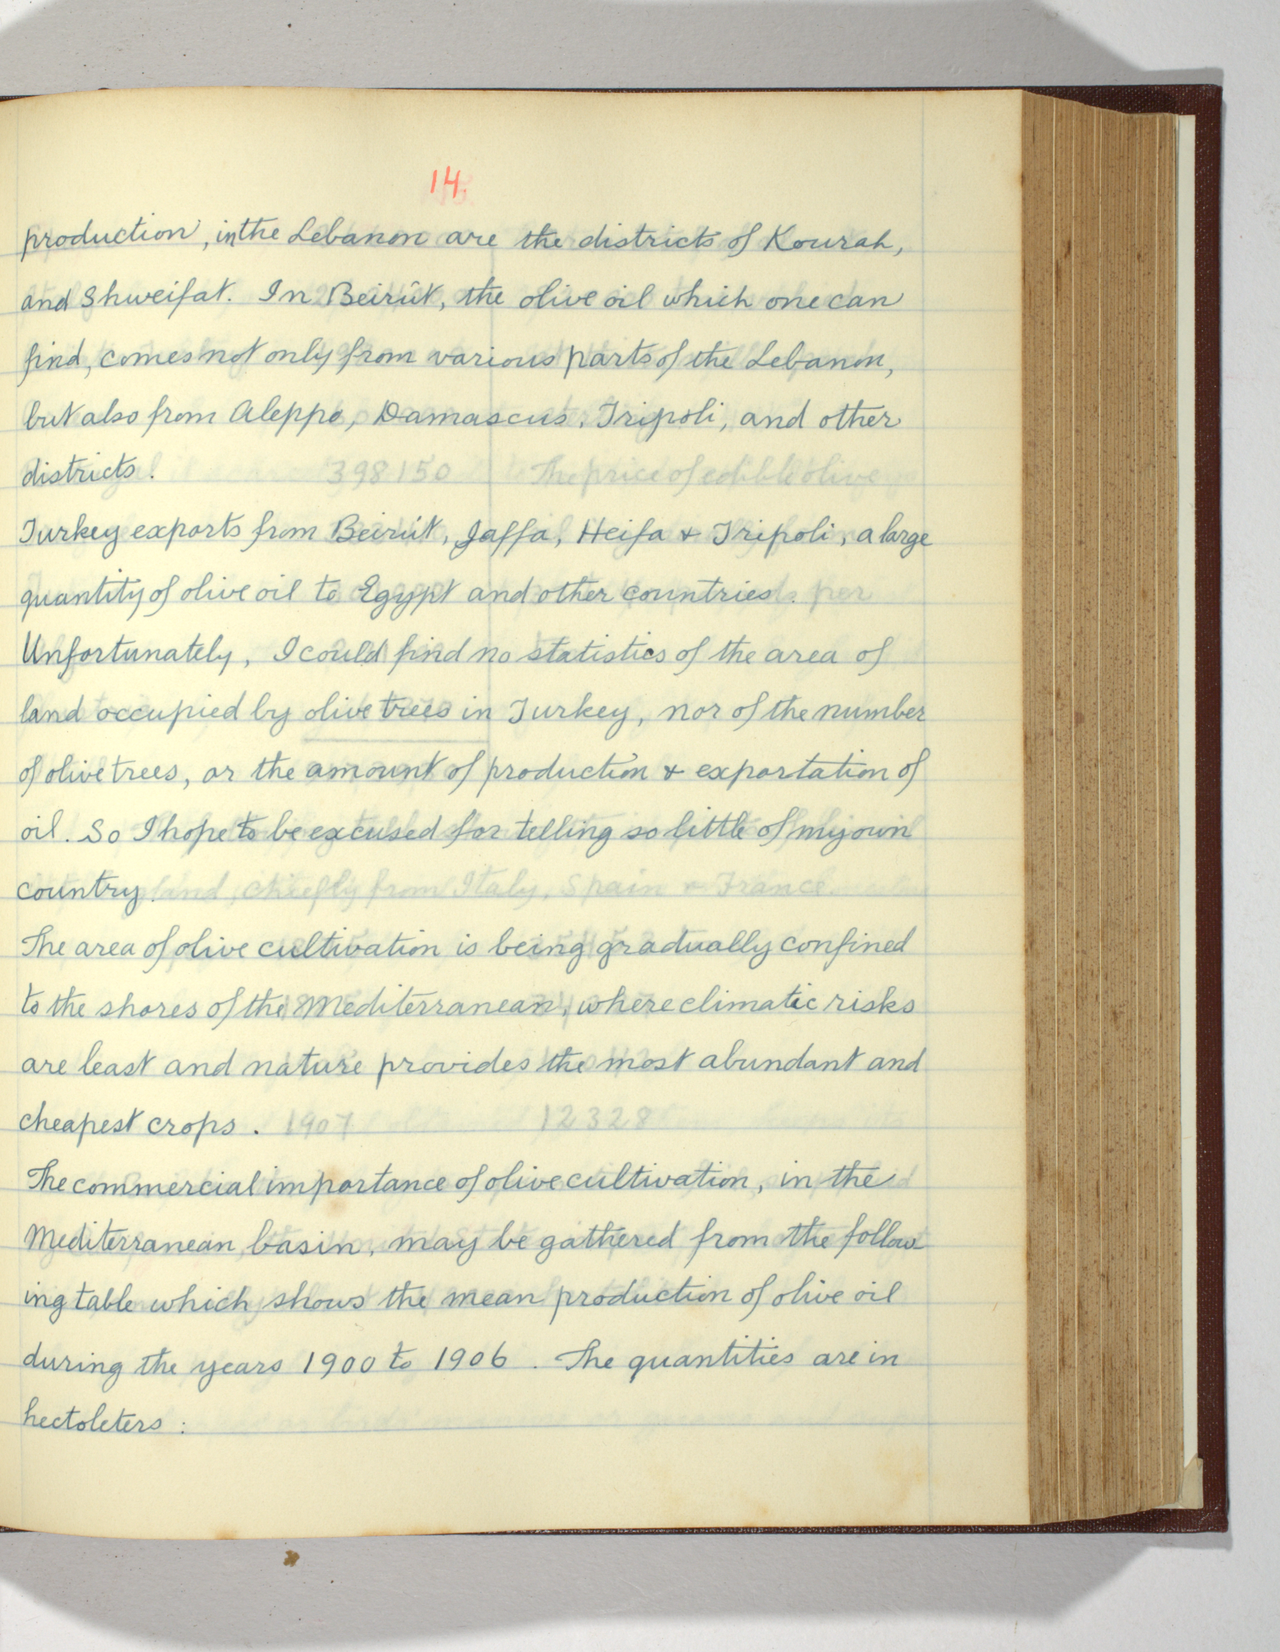 14.
production, in the Lebanon are the districts of Kourah,
and Shweifat. In Beirût, the olive oil which one can
find, comes not only from various parts of the Lebanon,
but also from Aleppo, Damascus, Tripoli, and other
districts.
Turkey exports from Beirût, Jaffa, Heifa & Tripoli, a large
quantity of olive oil to Egypt and other countries.
Unfortunately, I could find no statistics of the area of
land occupied by olive trees in Turkey, nor of the number
of olive trees, or the amount of production & exportation of
oil. So I hope to be excused for telling so little of my own
country.
The area of olive cultivation is being gradually confined
to the shores of the Mediterranean, where climatic risks
are least and nature provides the most abundant and
cheapest crops.
The commercial importance of olive cultivation, in the
Mediterranean basin, may be gathered from the follow
ing table which shows the mean production of olive oil
during the years 1900 to 1906. The quantities are in
hectoleters: